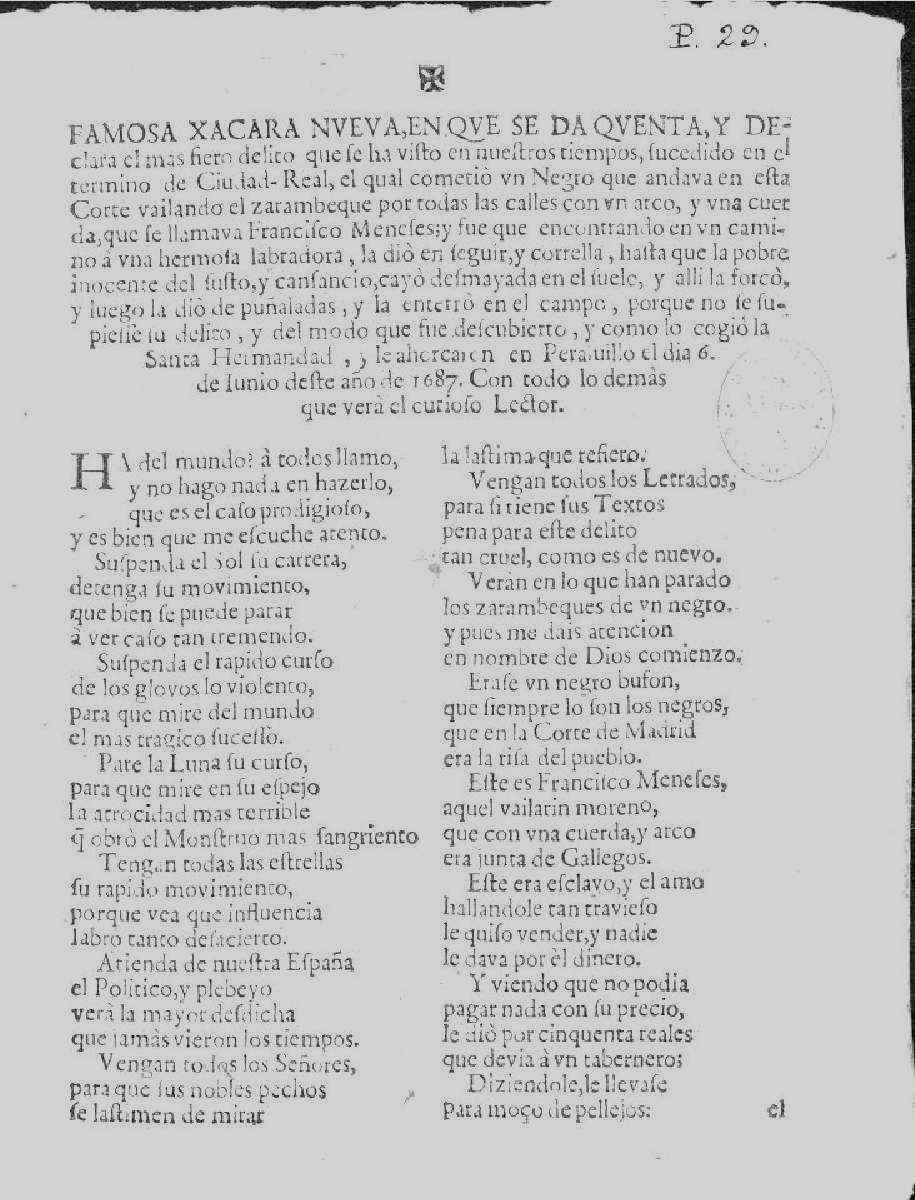 P. 29.
FAMOSA XACARA NVEVA, EN QVE SE DA QVENTA, Y DE-
clara el mas fiero delito que se ha visto en nuestros tiempos, sucedido en el
termino de Ciudad-Real, el qual cometiò vn Negro que andava en esta
Corte vailando el zarambeque por todas las calles con vn arco, y vna cuer
da, que se llamava Francisco Meneses; y fue que encontrando en vn cami-
no à vna hermosa labradora, la diò en seguir, y corrella, hasta que la pobre
inocente del susto, y cansancio, cayò desmayada en el suelo, y alli la forcò,
y luego la diò de puñaladas, y la enterrò en el campo, porque no se su-
piesse su delito, y del modo que fue descubierto, y como lo cogiò la
Santa Hermandad, y le ahorcaron en Peraluillo el dia 6.
de Iunio deste año de 1687. Con todo lo demàs
que verà el curioso Lector.
HA del mundo? à todos llamo,
y no hago nada en hazerlo,
que es el caso prodigioso,
y es bien que me escuche atento.
Suspenda el Sol su carrera,
detenga su movimiento,
que bien se puede parar
à ver caso tan tremendo.
Suspenda el rapido curso
de los glovos lo violento,
para que mire del mundo
el mas tragico sucesso.
Pare la Luna su curso,
para que mire en su espejo
la atrocidad mas terrible
q̃ obrò el Monstruo mas sangriento
Tengan todas las estrellas
su rapido movimiento,
porque vea que influencia
labrò tanto desacierto.
Atienda de nuestra España
el Politico, y plebeyo
verà la mayor desdicha
que jamàs vieron los tiempos.
Vengan todos los Señores,
para que sus nobles pechos
se lastimen de mirar
la lastima que refiero.
Vengan todos los Letrados,
para si tiene sus Textos
pena para este delito
tan cruel, como es de nuevo.
Veràn en lo que han parado
los zarambeques de vn negro.
y pues me dais atencion
en nombre de Dios comienzo.
Erase vn negro bufon,
que siempre lo son los negros,
que en la Corte de Madrid
era la risa del pueblo.
Este es Francisco Meneses,
aquel vailarin moreno,
que con vna cuerda, y arco
era junta de Gallegos.
Este era esclavo, y el amo
hallandole tan travieso
le quiso vender, y nadie
le dava por èl dinero.
Y viendo que no podia
pagar nada con su precio,
le diò por cinquenta reales
que devia à vn tabernero;
Diziendole, le llevase
para moço de pellejos:
el